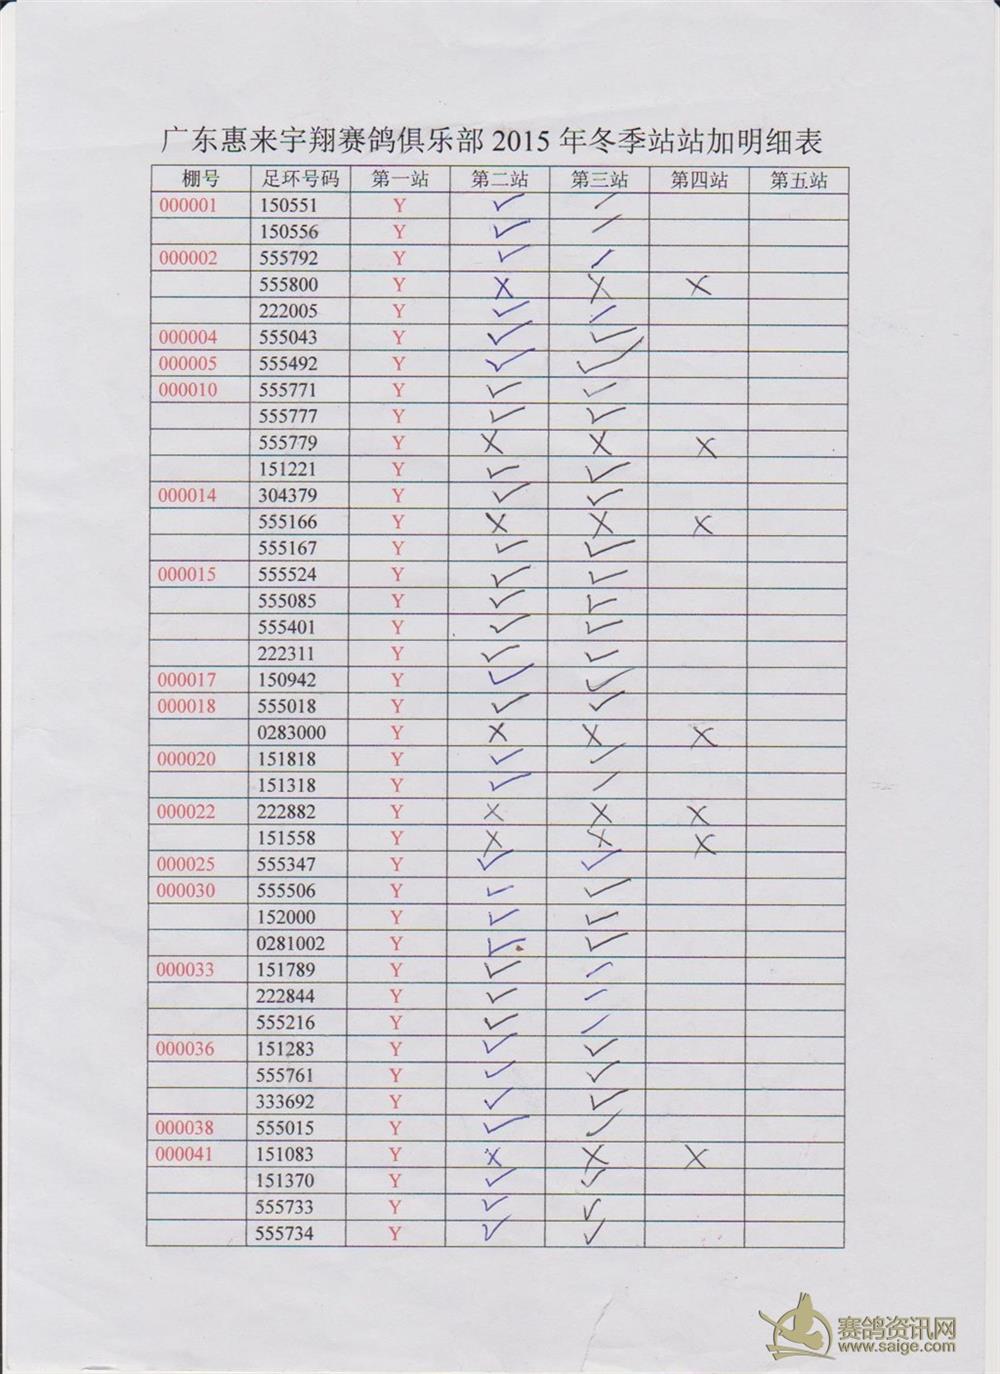 广东惠来宇翔赛鸽俱乐部2015年冬季站站加明细表
棚号 足环号码 第一站 第二站 第三站 第四站 第五站
000001 150551 Y ✓ ✓
150556 Y ✓ ✓
000002 555792 Y ✓ ✓
555800 Y X X X
222005 Y ✓ ✓
000004 555043 Y ✓ ✓
000005 555492 Y ✓ ✓
000010 555771 Y ✓ ✓
555777 Y ✓ ✓
555779 Y X X X
151221 Y ✓ ✓
000014 304379 Y ✓ ✓
555166 Y X X X
555167 Y ✓ ✓
000015 555524 Y ✓ ✓
555085 Y ✓ ✓
555401 Y ✓ ✓
222311 Y ✓ ✓
000017 150942 Y ✓ ✓
000018 555018 Y ✓ ✓
0283000 Y X X X
000020 151818 Y ✓ ✓
151318 Y ✓ ✓
000022 222882 Y X X X
151558 Y X X X
000025 555347 Y ✓ ✓
000030 555506 Y ✓ ✓
152000 Y ✓ ✓
0281002 Y ✓ ✓
000033 151789 Y ✓ ✓
222844 Y ✓ ✓
555216 Y ✓ ✓
000036 151283 Y ✓ ✓
555761 Y ✓ ✓
333692 Y ✓ ✓
000038 555015 Y ✓ ✓
000041 151083 Y X X X
151370 Y ✓ ✓
555733 Y ✓ ✓
555734 Y ✓ ✓
赛鸽资讯网
www.saige.com